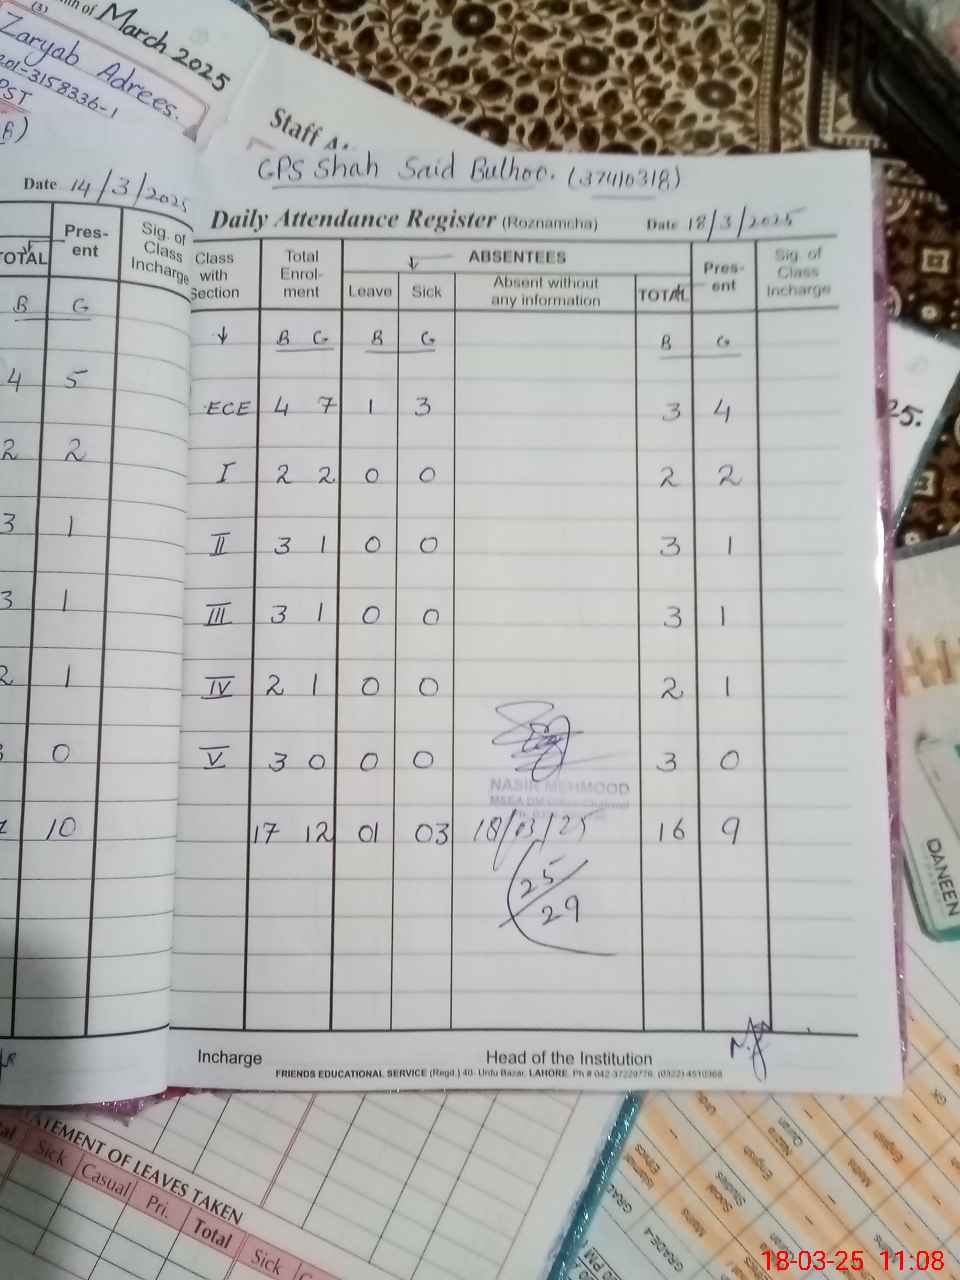 (3)
of March 2025
Zaryab Adrees.
201-3158336-1
PST
Staff
GPS Shah Said Bulhoo. (37410318)
Date 14/3/2025
Daily Attendance Register (Roznamcha) Date 18/3/2025
TOTAL Pres-ent Sig. of Class Incharge
B G
4 5
2 2
3 1
3 1
2 1
0
10
Class with Section Total Enrol-ment ABSENTEES Pres-ent Sig. of Class Incharge
Leave Sick Absent without any information TOTAL
↓ B G B G B G
ECE 4 7 1 3 3 4
I 2 2 0 0 2 2
II 3 1 0 0 3 1
III 3 1 0 0 3 1
IV 2 1 0 0 2 1
V 3 0 0 0 3 0
NASIR MEHMOOD
17 12 01 03 18/03/25 16 9
25/29
Incharge Head of the Institution
FRIENDS EDUCATIONAL SERVICE (Regd.) 40- Urdu Bazar, LAHORE. Ph # 042-37229776, (0322) 4510368
25.
DANEEN
STATEMENT OF LEAVES TAKEN
Sick Casual Pri. Total Sick
GRADE-4
GK
English
Maths
18-03-25 11:08